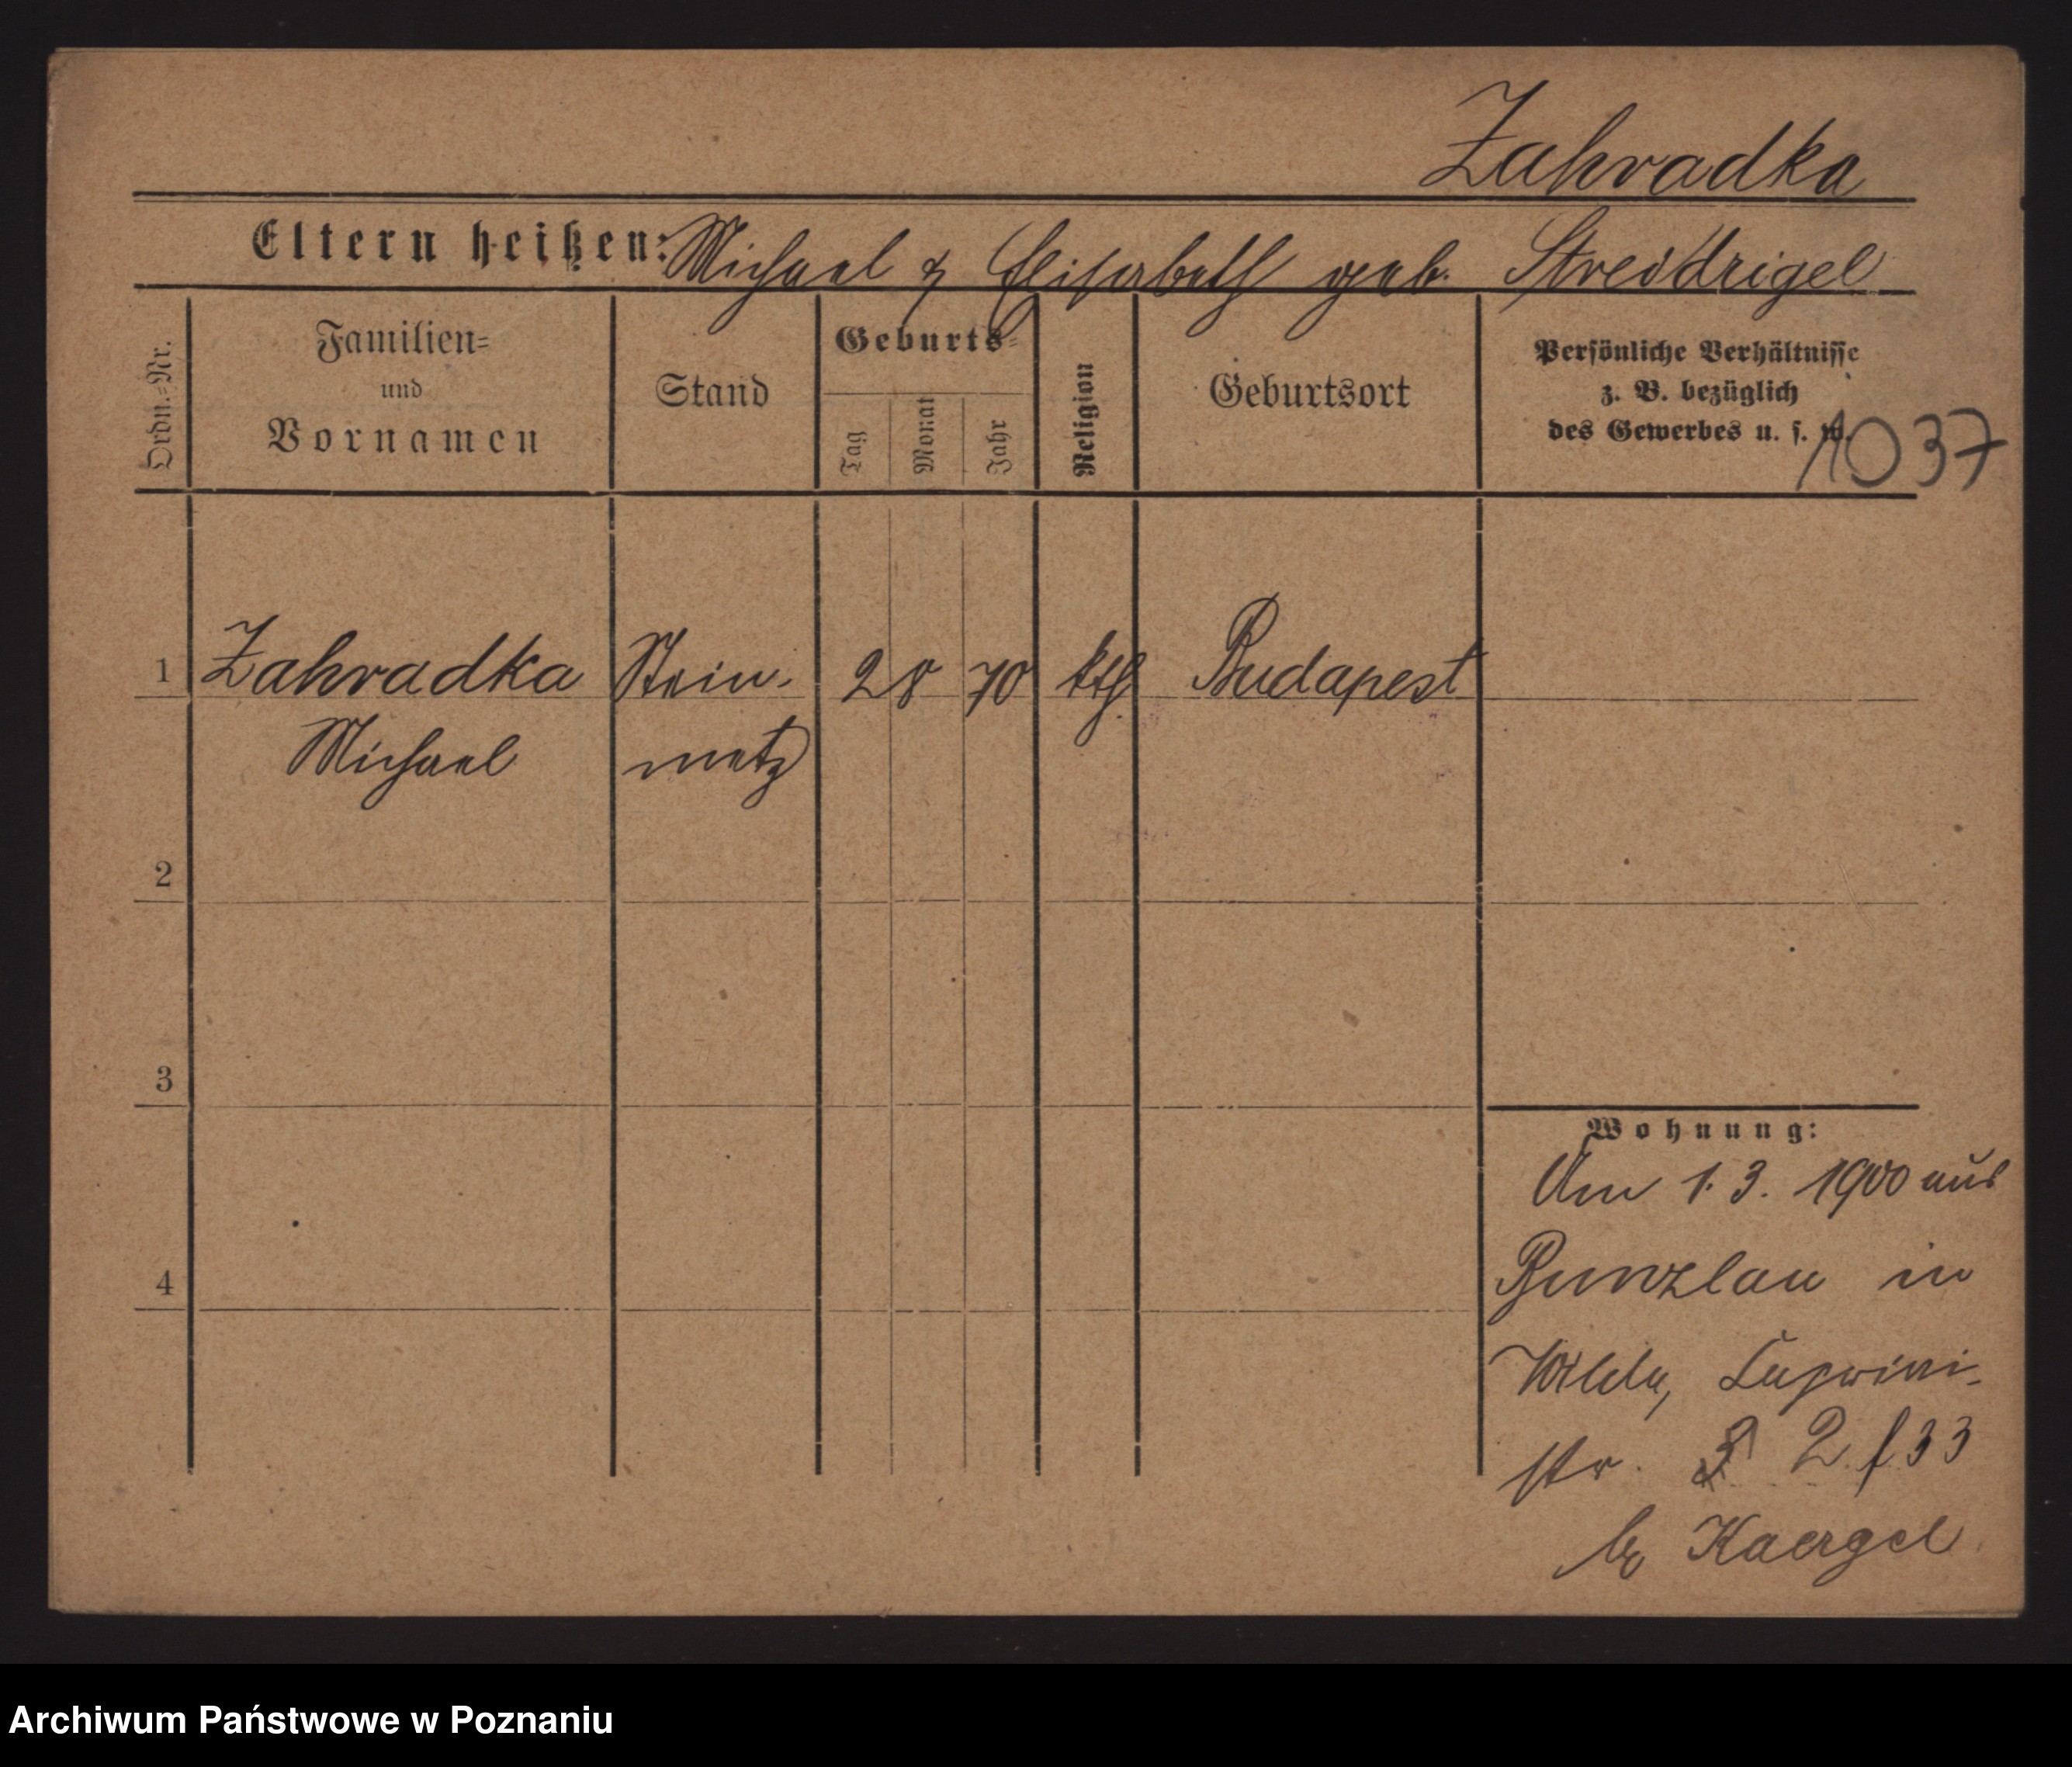 Zahradka
Eltern heißen: Michael & Elisabeth geb. Streidrigel
Ordn.=Nr.
Familien=
und
Vornamen
Stand
Geburts=
Tag
Monat
Jahr
Religion
Geburtsort
Persönliche Verhältnisse
z. B. bezüglich
des Gewerbes u. s. w.
1037
1 Zahradka Stein- 2 8 70 kth Budapest
Michael metz
2
3
4
Wohnung:
Am 1.3. 1900 aus
Bunzlau in
Wilda,
str. 2 f 33
b Kaergel
Archiwum Państwowe w Poznaniu